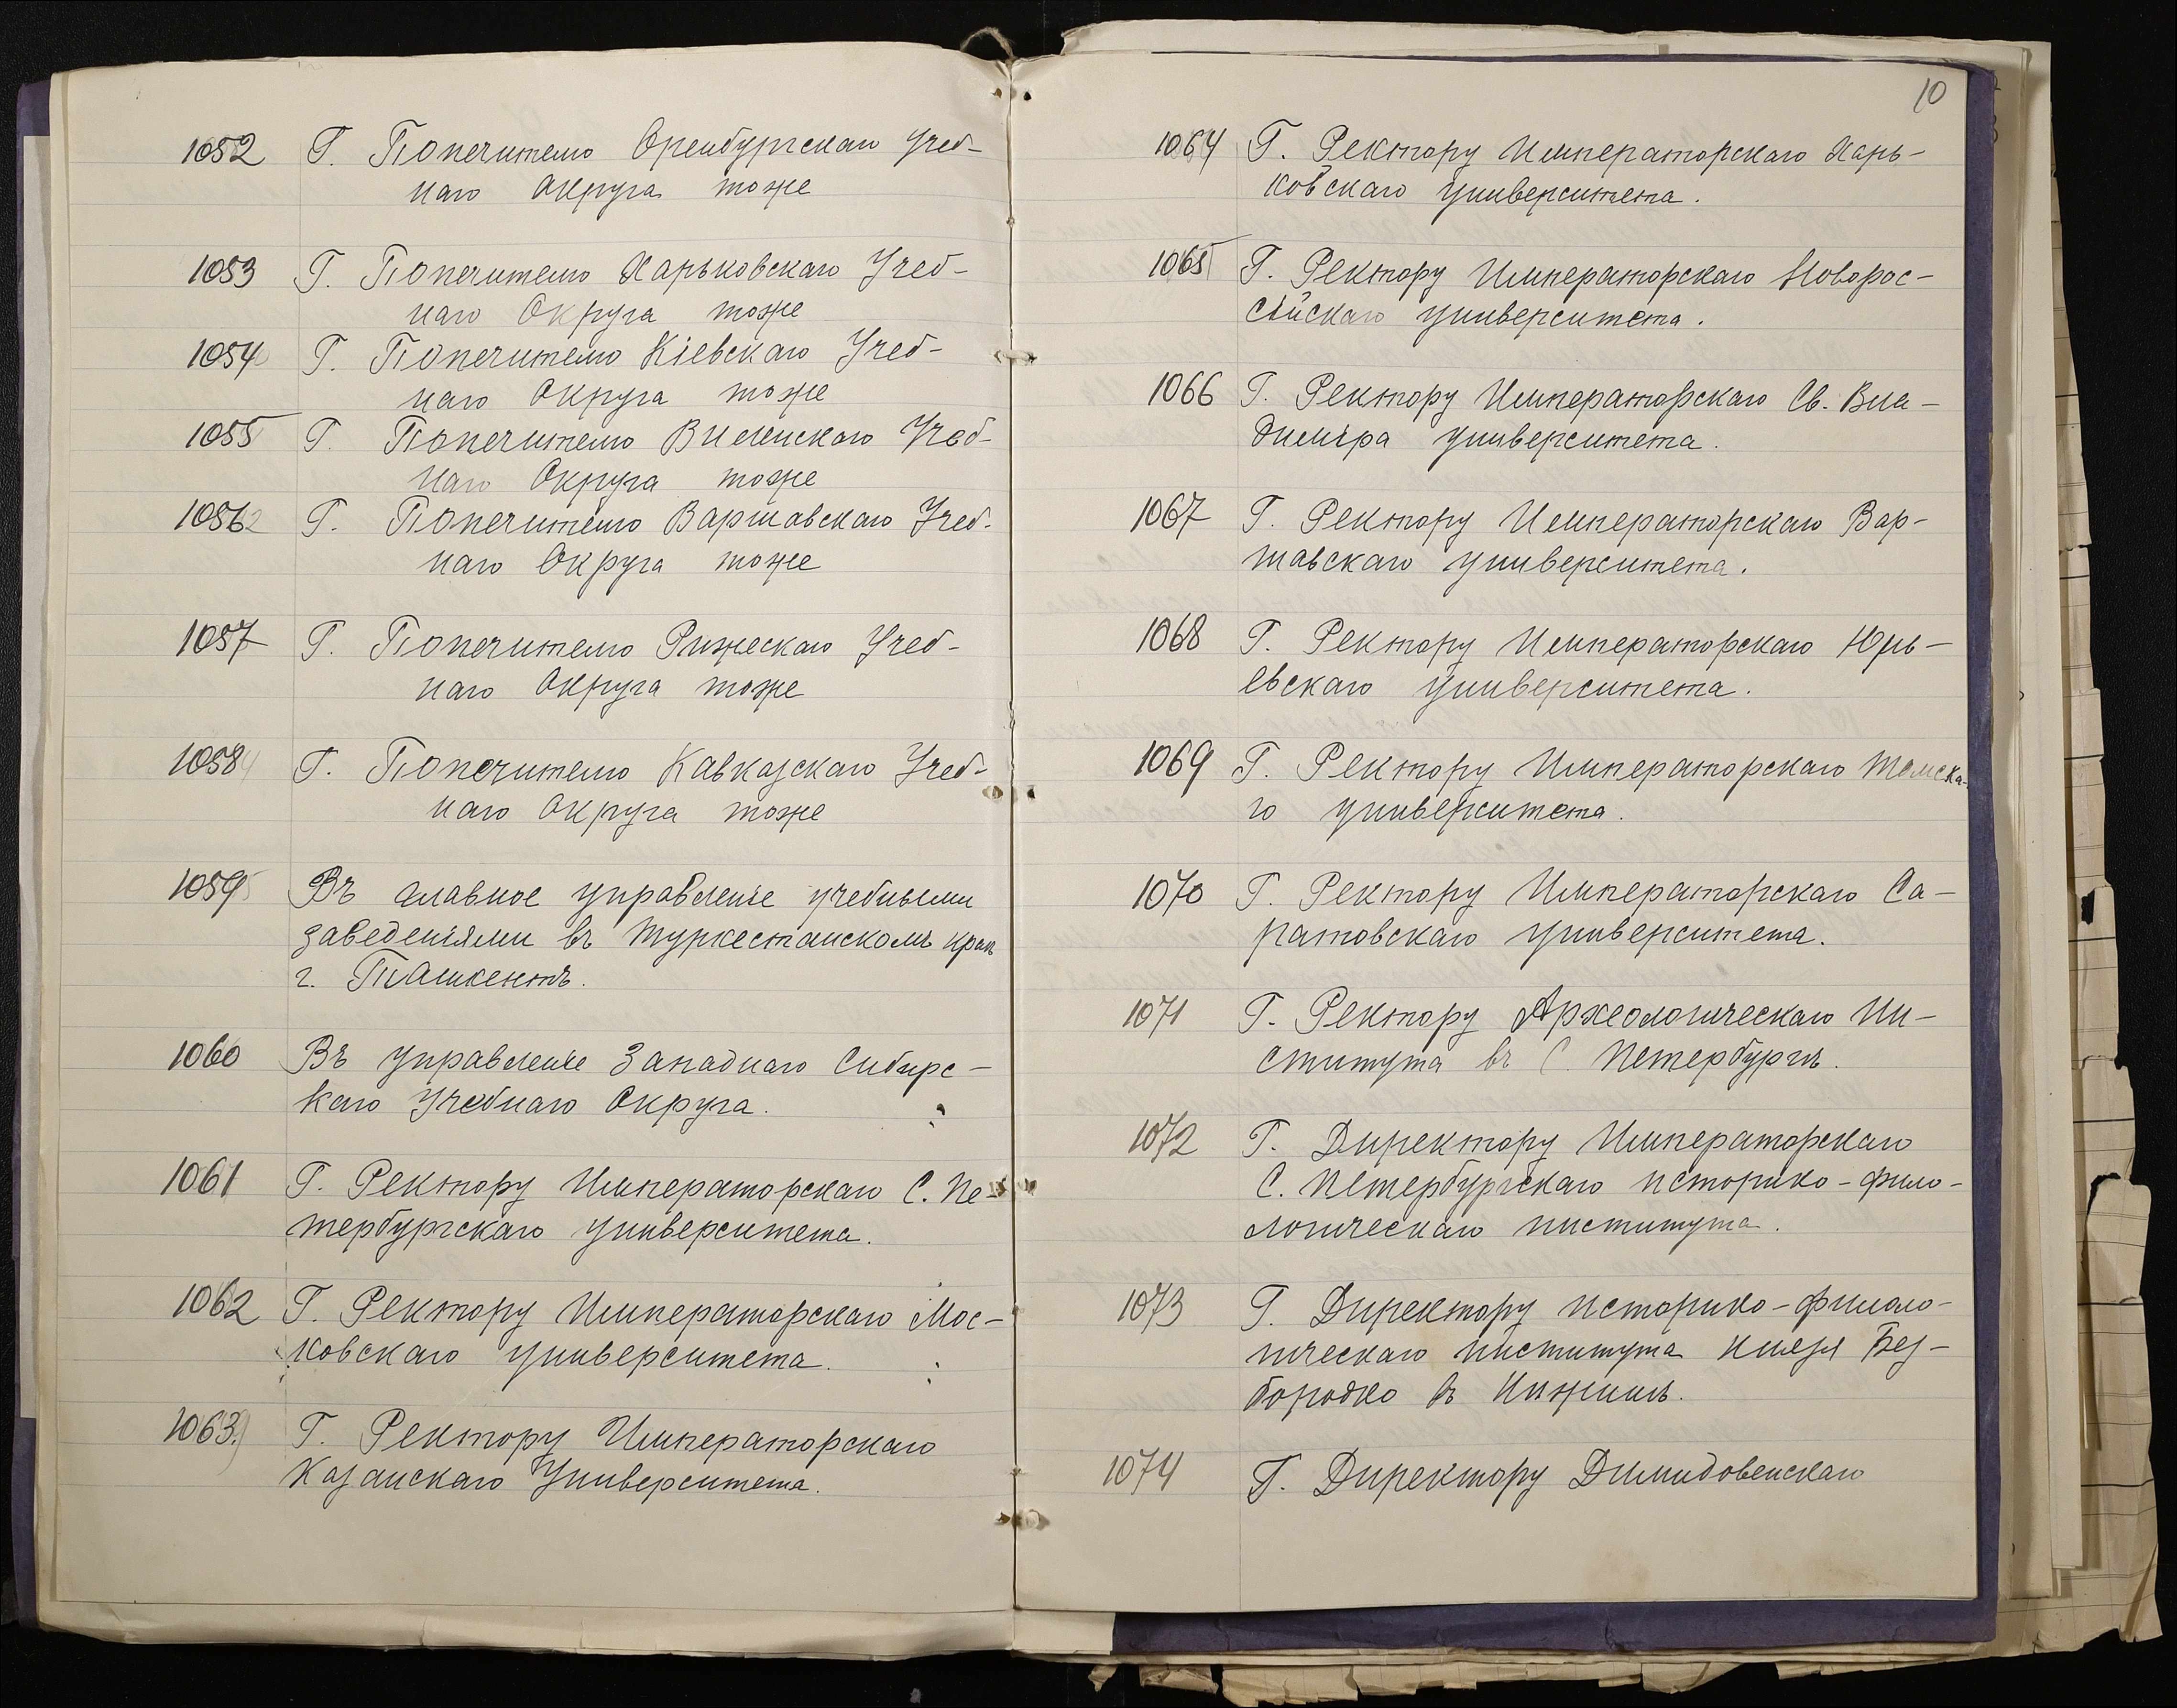 1052 Г. Попечителю Оренбургскаго Учеб-
наго Округа тоже
1053 Г. Попечителю Харьковскаго Учеб-
наго Округа тоже
1054 Г. Попечителю Кіевскаго Учеб-
наго Округа тоже
1055 Г. Попечителю Виленскаго Учеб-
наго Округа тоже
1056 Г. Попечителю Варшавскаго Учеб-
наго Округа тоже
1057 Г. Попечителю Рижескаго Учеб-
наго Округа тоже
1058 Г. Попечителю Кавказскаго Учеб-
наго Округа тоже
1059 Въ главное управленіе учебными
заведеніями въ Туркестанскомъ краѣ
г. Ташкентъ.
1060 Въ Управленіе Западнаго Сибирс-
каго Учебнаго Округа.
1061 Г. Ректору Императорскаго С. Пе-
тербургскаго Университета.
1062 Г. Ректору Императорскаго Мос-
ковскаго Университета.
1063 Г. Ректору Императорскаго
Казанскаго Университета.
10
1064 Г. Ректору Императорскаго Харь-
ковскаго Университета.
1065 Г. Ректору Императорскаго Новорос-
сійскаго Университета.
1066 Г. Ректору Императорскаго Св. Вла-
диміра Университета.
1067 Г. Ректору Императорскаго Вар-
шавскаго Университета.
1068 Г. Ректору Императорскаго Юрь-
евскаго Университета.
1069 Г. Ректору Императорскаго Томска-
го Университета.
1070 Г. Ректору Императорскаго Са-
ратовскаго Университета.
1071 Г. Ректору Археологическаго Ин-
ститута въ С. Петербургѣ.
1072 Г. Директору Императорскаго
С. Петербургскаго историко-фило-
логическаго института.
1073 Г. Директору историко-филоло-
гическаго института Князя Без-
бородко въ Нижинѣ.
1074 Г. Директору Димидовенскаго